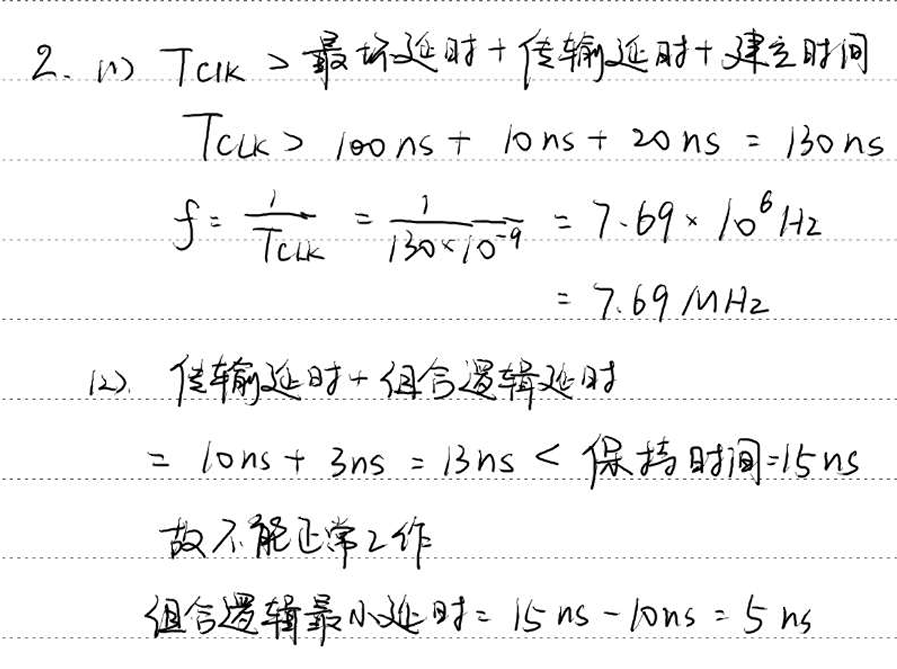 2. (1) TCLK > 最坏延时 + 传输延时 + 建立时间
TCLK > 100ns + 10ns + 20ns = 130ns
f = 1/TCLK = 1/(130×10⁻⁹) = 7.69 × 10⁶ Hz
= 7.69 MHz
(2). 传输延时 + 组合逻辑延时
= 10ns + 3ns = 13ns < 保持时间 = 15ns
故不能正常工作
组合逻辑最小延时 = 15ns - 10ns = 5ns